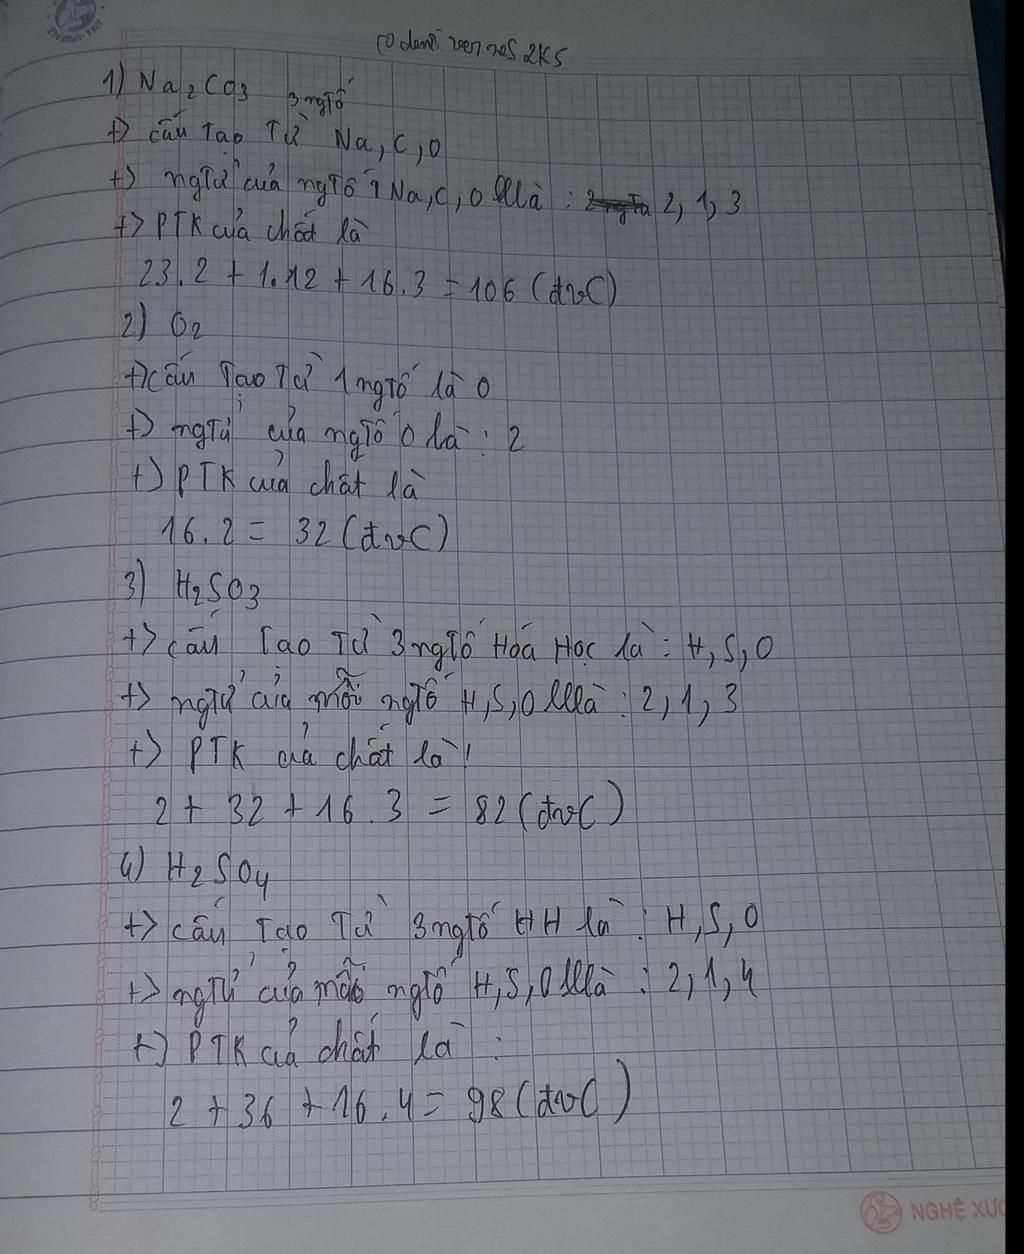 2K5
1) Na2CO3 3 ngTố
+> cấu Tạo Từ Na, C, O
+> ngTử của ngTố Na, C, O lllà : 2, 1, 3
+> PTK của chất là
23.2 + 1.12 + 16.3 = 106 (đvC)
2) O2
+> cấu Tạo Từ 1 ngTố là O
+> ngTử của ngTố O là : 2
+> PTK của chất là
16.2 = 32 (đvC)
3) H2SO3
+> cấu Tạo Từ 3 ngTố Hoá Học là : H, S, O
+> ngTử của mỗi ngTố H, S, O lllà : 2, 1, 3
+> PTK của chất là !
2 + 32 + 16.3 = 82 (đvC)
4) H2SO4
+> cấu Tạo Từ 3 ngTố HH là : H, S, O
+> ngTử của mỗi ngTố H, S, O lllà : 2, 1, 4
+> PTK của chất là :
2 + 36 + 16.4 = 98 (đvC)
NGHỆ XƯƠ